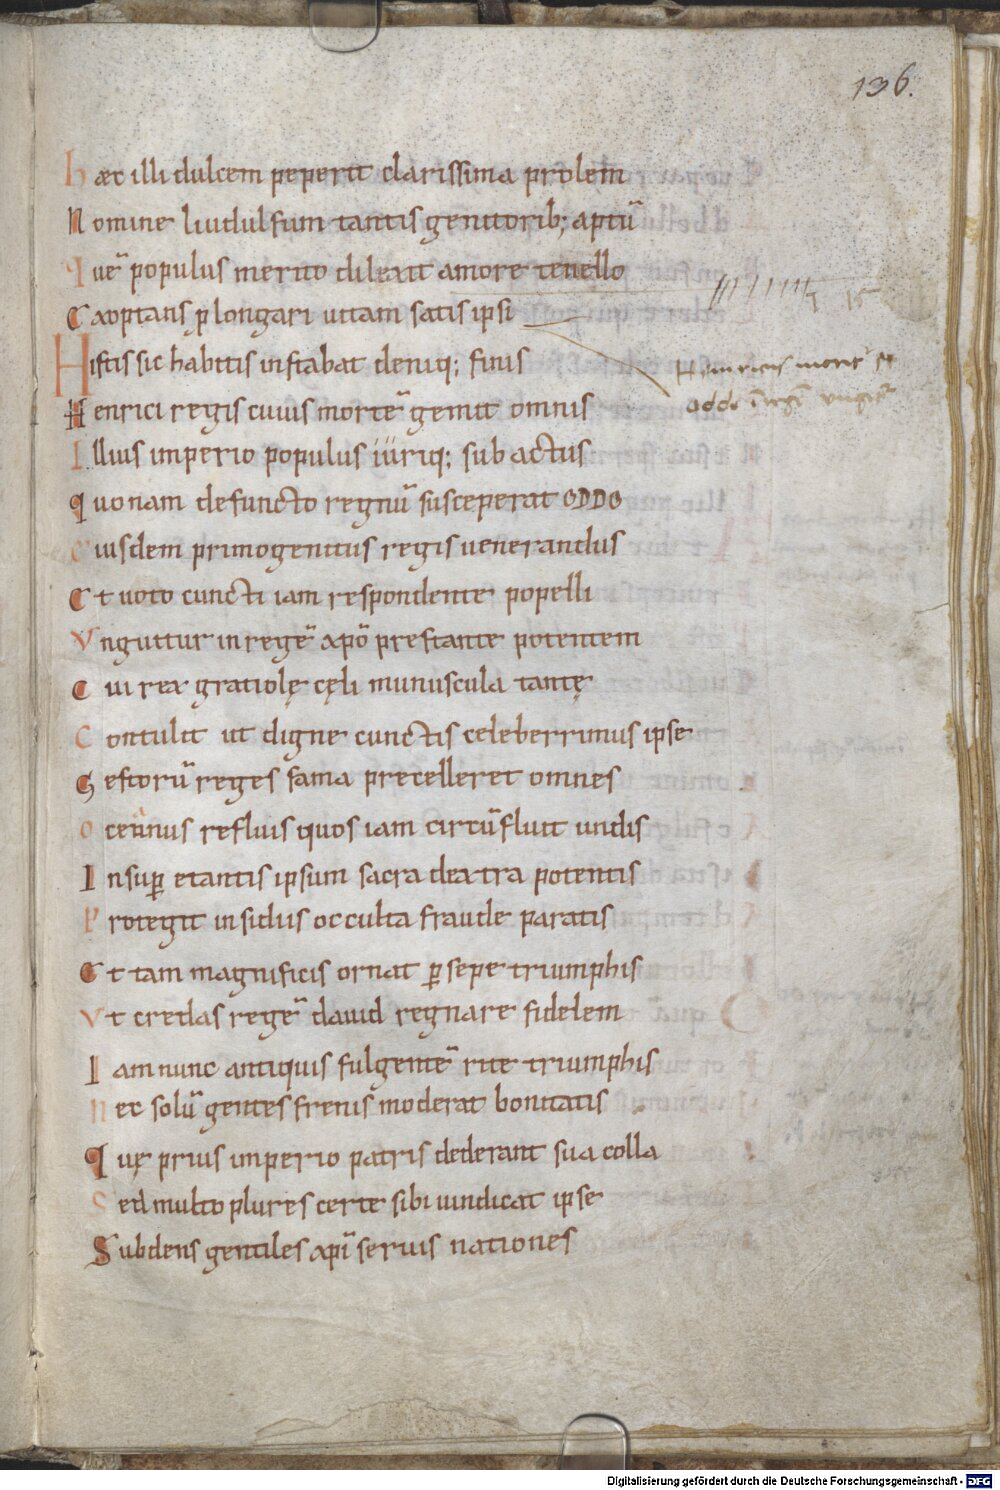 136.
Hæc illi dulcem peperit clarissima prolem
Nomine liudulfum tantis genitorib; aptū
Quē populus merito dilexit amore tenello
Captans plongari uitam satis ipsi
Histis sic habitis instabat deniq; finis
Henrici regis cuius mortē gemit omnis
Illius imperio populus iuriq; subactus
Quonam defuncto regnū susceperat ODDO
Eiusdem primogenitus regis uenerandus
Et uoto cuncti iam respondente popelli
Unguitur in regē xpō prestante potentem
Cui rex gratiolę cęli munuscula tantę
Contulit ut digne cunctis celeberrimus ipse
Gestorū reges fama precelleret omnes
Oceanus refluis quos iam circūfluit undis
Insup etantis ipsum sacra dextra potentis
Protegit insidiis occulta fraude paratis
Et tam magnificis ornat psepe triumphis
Ut credas regē dauid regnare fidelem
Iam nunc antiquis fulgentē rite triumphis
Nec solū gentes frenis moderat bonitatis
Quę prius imperio patris dederant sua colla
Sed multo plures certe sibi uindicat ipse
Subdens gentiles xpī seruis nationes
Digitalisierung gefördert durch die Deutsche Forschungsgemeinschaft - DFG